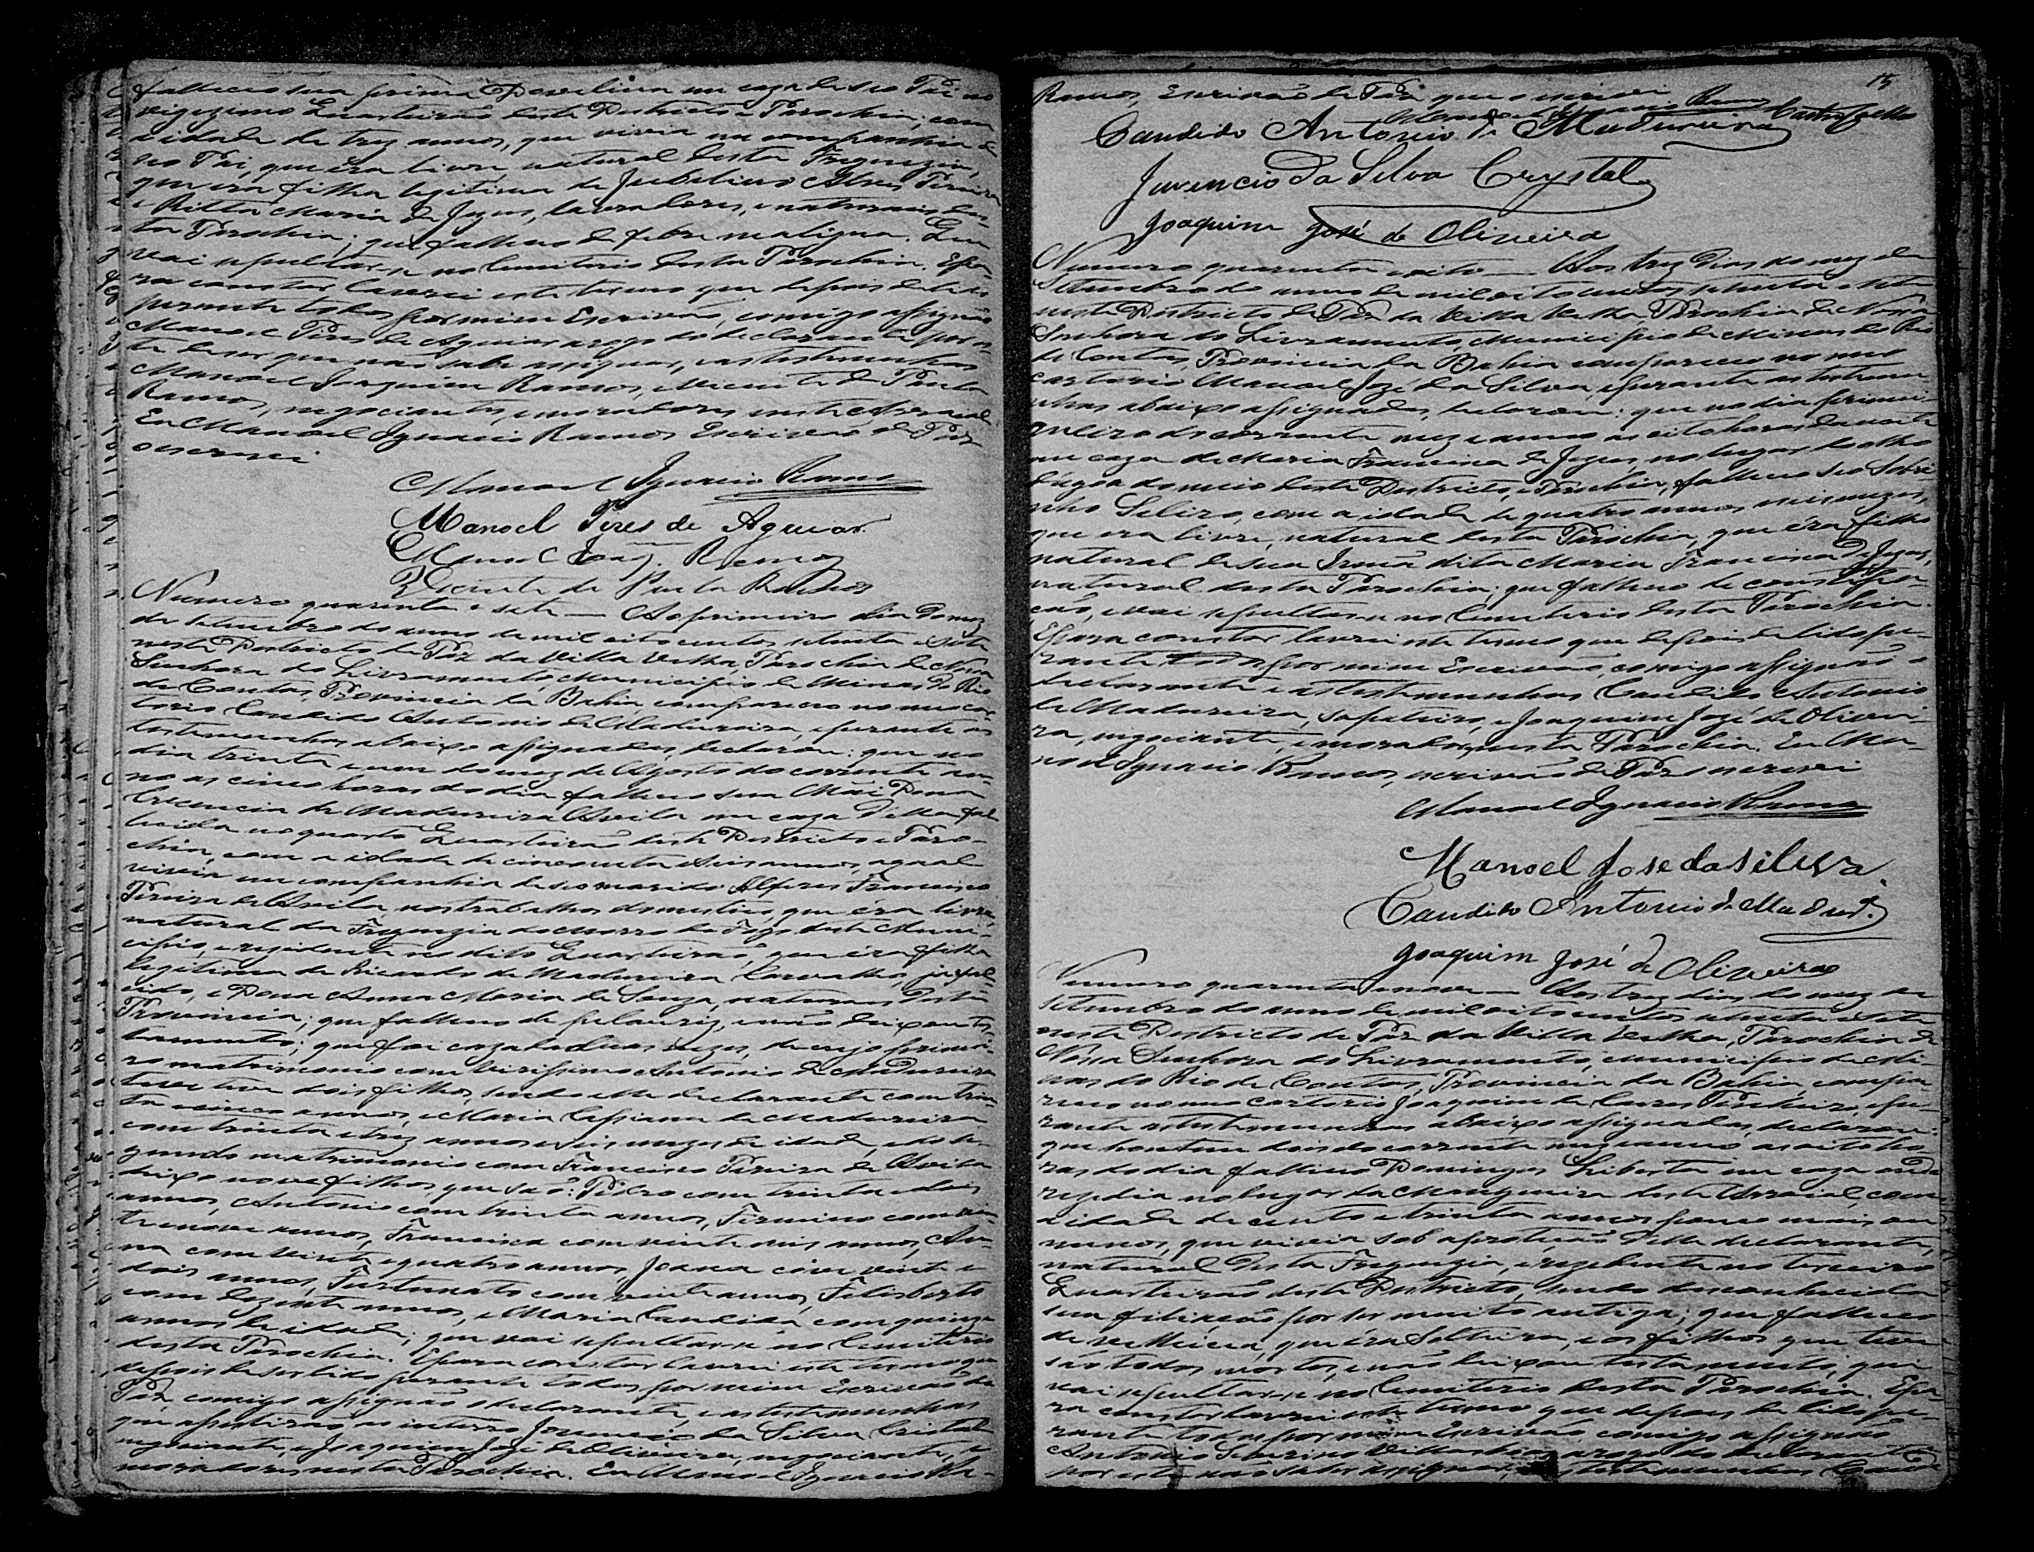 falleceo sua prima Evelina em caza de seo Pai no
vigezimo Quarteirão deste Districto e Parochia; com
a idade de trez annos, que vivia na companhia de
seo Pai, que éra livre, natural desta Freguezia,
que éra filha legitima de Jubelino Alves Pereira
e Ritta Maria de Jezus, lavradores, e naturais des-
ta Parochia; que falleceo de febre maligna. Que
vai sepultar-se no Cemiterio desta Parochia. E pa-
ra constar lavrei este termo que depois de lido
perante todos por mim Escrivão, comigo assignão
Manoel Pires de Aguiar a rogo do declarante por es-
te dizer que não sabe assignar, e as testemunhas
Manoel Joaquim Ramos, e Vicente de Paula
Ramos, negociantes, e moradores neste Arraial.
Eu Manoel Ignacio Ramos Escrivão de Paz
o escrevi
Manoel Ignacio Ramos
Manoel Pires de Aguiar
Manoel Joaq. Ramos
Vicente de Paula Ramos
Numero quarenta e sete — Ao primeiro dia do mez
de Setembro do anno de mil oito centos setenta e sete
neste Districto de Paz da Villa Velha, Parochia de Nossa
Senhora do Livramento, Municipio de Minas do Rio
de Contas, Provincia da Bahia compareceo no meo car-
torio Candido Antonio de Madureira, e perante as
testemunhas abaixo assignadas, declarou: que no
dia trinta e um do mez de Agosto do corrente an-
no as cinco horas do dia falleceo sua Mai Dona
Crecencia de Madureira Avila em caza della fal-
lecida no quarto Quarteirão deste Districto e Paro-
chia, com a idade de cincoenta e seis annos, a qual
vivia em companhia de seo marido Alferes Francisco
Pereira de Avila, nos trabalhos domesticos, que éra livre,
natural da Freguezia do Morro do Fogo deste Muni-
cipio, e rezidente no dito Quarteirão, que éra filha
legitima de Ricardo de Madureira Carvalho, já fal-
lecido, e Dona Anna Maria de Souza, naturaes desta
Provincia; que falleceo de pelauriz, e não deixou tes-
tamento; que foi cazada duas vezes, de cujo primei-
ro matrimonio com Virissimo Antonio de Madureira
teve tem dois filhos, sendo elle declarante com trin-
ta e cinco annos, e Maria Cassiana de Madureira
com trinta e trez annos e seis mezes de idade, e do se-
gundo matrimonio com Francisco Pereira de Avila
deixo nove filhos, que são: Pedro com trinta e dois
annos, Antonio com trinta annos, Firmino com vin-
te nove annos, Francisca com vinte seis annos, An-
na com vinte e quatro annos, Joana com vinte e
dois annos, Furtunato com vinte annos, Felisberto
com dezente annos, e Maria Candida com quinze
annos de idade; que vai sepultar-se no Cemiterio
desta Parochia. E para constar lavrei este termo que
depois de ser lido perante todos por mim Escrivão de
Paz comigo assignão o declarante, e as testemunhas
que assistirão ao interro Juvencio da Silva Cristal
negociante, e Joaquim José de Oliveira, negociante, e
moradores nesta Parochia. Eu Manoel Ignacio Ra-
15
Ramos, Escrivão de Paz que o escrevi
Manoel Ignacio Ramos
Candido Antonio de Madureira
Juvencio da Silva Crystal
Joaquim José de Oliveira
Numero quarenta e oito — Aos trez dias do mez de
Setembro do anno de mil oito centos setenta e sete
neste Districto de Paz da Villa Velha Parochia de Nossa
Senhora do Livramento, Municipio de Minas do Rio
de Contas, Provincia da Bahia compareceo no meo
cartorio Manoel José da Silva, e perante as testemu-
nhas abaixo assignadas, declarou: que no dia primei-
ro do corrente mez e anno as oito horas da noite
em caza de Maria Francisca de Jezus, no lugar do olho
d'agoa do meio deste Districto e Parochia, falleceo seo Sobri-
nho Seliro, com a idade de quatro annos e seis mezes,
que era livre, natural desta Parochia, que éra filho
natural de sua Irmã dita Maria Francisca de Jezus,
natural desta Parochia; que falleceo de constipa-
ção, e vai sepultar-se no Cemiterio desta Parochia.
E para constar lavrei este termo que depois de lido pe-
rante todos por mim Escrivão, comigo assignão o
declarante e as testemunhas Candido Antonio
de Madureira, sapateiro, e Joaquim José de Olivei-
ra, negociante, e moradores nesta Parochia. Eu Ma-
noel Ignacio Ramos, escrivão de Paz o escrevi
Manoel Ignacio Ramos
Manoel Jose da Silva
Candido Antonio de Madur.ª
Joaquim José de Oliveira
Numero quarenta e nove — Aos trez dias do mez de
Setembro do anno de mil oito centos setenta e sete
neste Districto de Paz da Villa Velha, Parochia de
Nossa Senhora do Livramento, Municipio de Mi-
nas do Rio de Contas, Provincia da Bahia, compa-
receo no meo cartorio Joaquim de Pinheiro, e pe-
rante as testemunhas abaixo assignadas, declarou:
que hontem dois do corrente mez e anno as oito ho-
ras do dia falleceo Domingas Liberta em caza onde
rezidia no lugar da Mangueira deste Arraial, com
a idade de cento e trinta annos pouco mais ou
menos, que vivia sob a proteção delle declarante,
natural desta Freguezia, e rezidente no terceiro
Quarteirão deste Districto, sendo desconhecida
sua filiação por ser muito antiga; que falleceo
de velhice, que éra Solteira, e os filhos que teve
são todos mortos, e não deixou testamento, que
vai sepultar-se no Cemiterio desta Parochia. E pa-
ra constar lavrei este termo que depois de lido pe-
rante todos por mim Escrivão comigo assignão
Antonio Severino a rogo do declarante
por este não saber assignar, e as testemunhas